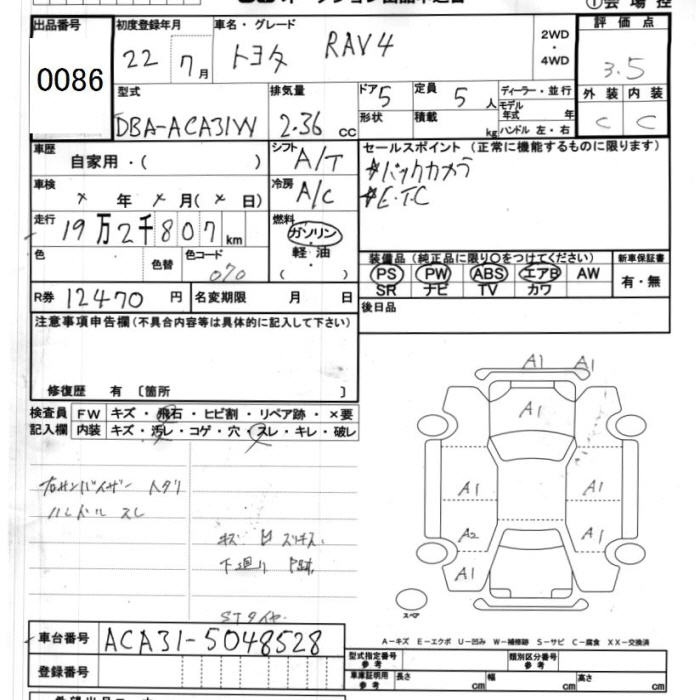 ①会場控
出品番号 初度登録年月 車名・グレード 2WD・4WD 評価点
0086 22 7月 トヨタ RAV4 3.5
型式 排気量 ドア 5 定員 5人 ディーラー・並行 外装 内装
DBA-ACA31W 2.36 cc 形状 積載 kg モデル年式 年 ハンドル 左・右 C C
車歴 自家用・( ) シフト A/T セールスポイント(正常に機能するものに限ります)
☆バックカメラ
☆E.T.C
車検 × 年 × 月(× 日) 冷房 A/C
走行 19万2千807km 燃料 ガソリン・軽油・( )
色 色替 色コード 070 装備品(純正品に限り○をつけてください) 新車保証書
PS PW ABS エアB AW 有・無
SR ナビ TV カワ
R券 12470円 名変期限 月 日 後日品
注意事項申告欄(不具合内容等は具体的に記入して下さい)
修復歴 有〔箇所 〕
検査員 FW キズ・飛石・ヒビ割・リペア跡・×要
記入欄 内装 キズ・汚レ・コゲ・穴・スレ・キレ・破レ
A1 A1
A1
A1 A1
A2 A1
A1
スペア
ハンドル スレ
キズ
下廻り
STタイヤ
A-キズ E-エクボ U-凹み W-補修跡 S-サビ C-腐食 XX-交換済
車台番号 ACA31-5048528
型式指定番号 参考 類別区分番号 参考
登録番号 車庫証明用 参考 長さ cm 幅 cm 高さ cm